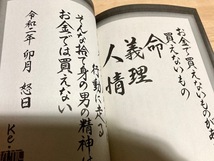 お金で
買えないもの
買えないもの
命
義理
人情
行動に走る
そんな捨て身の男の精神は
お金では買えない
令和二年 卯月 怒日